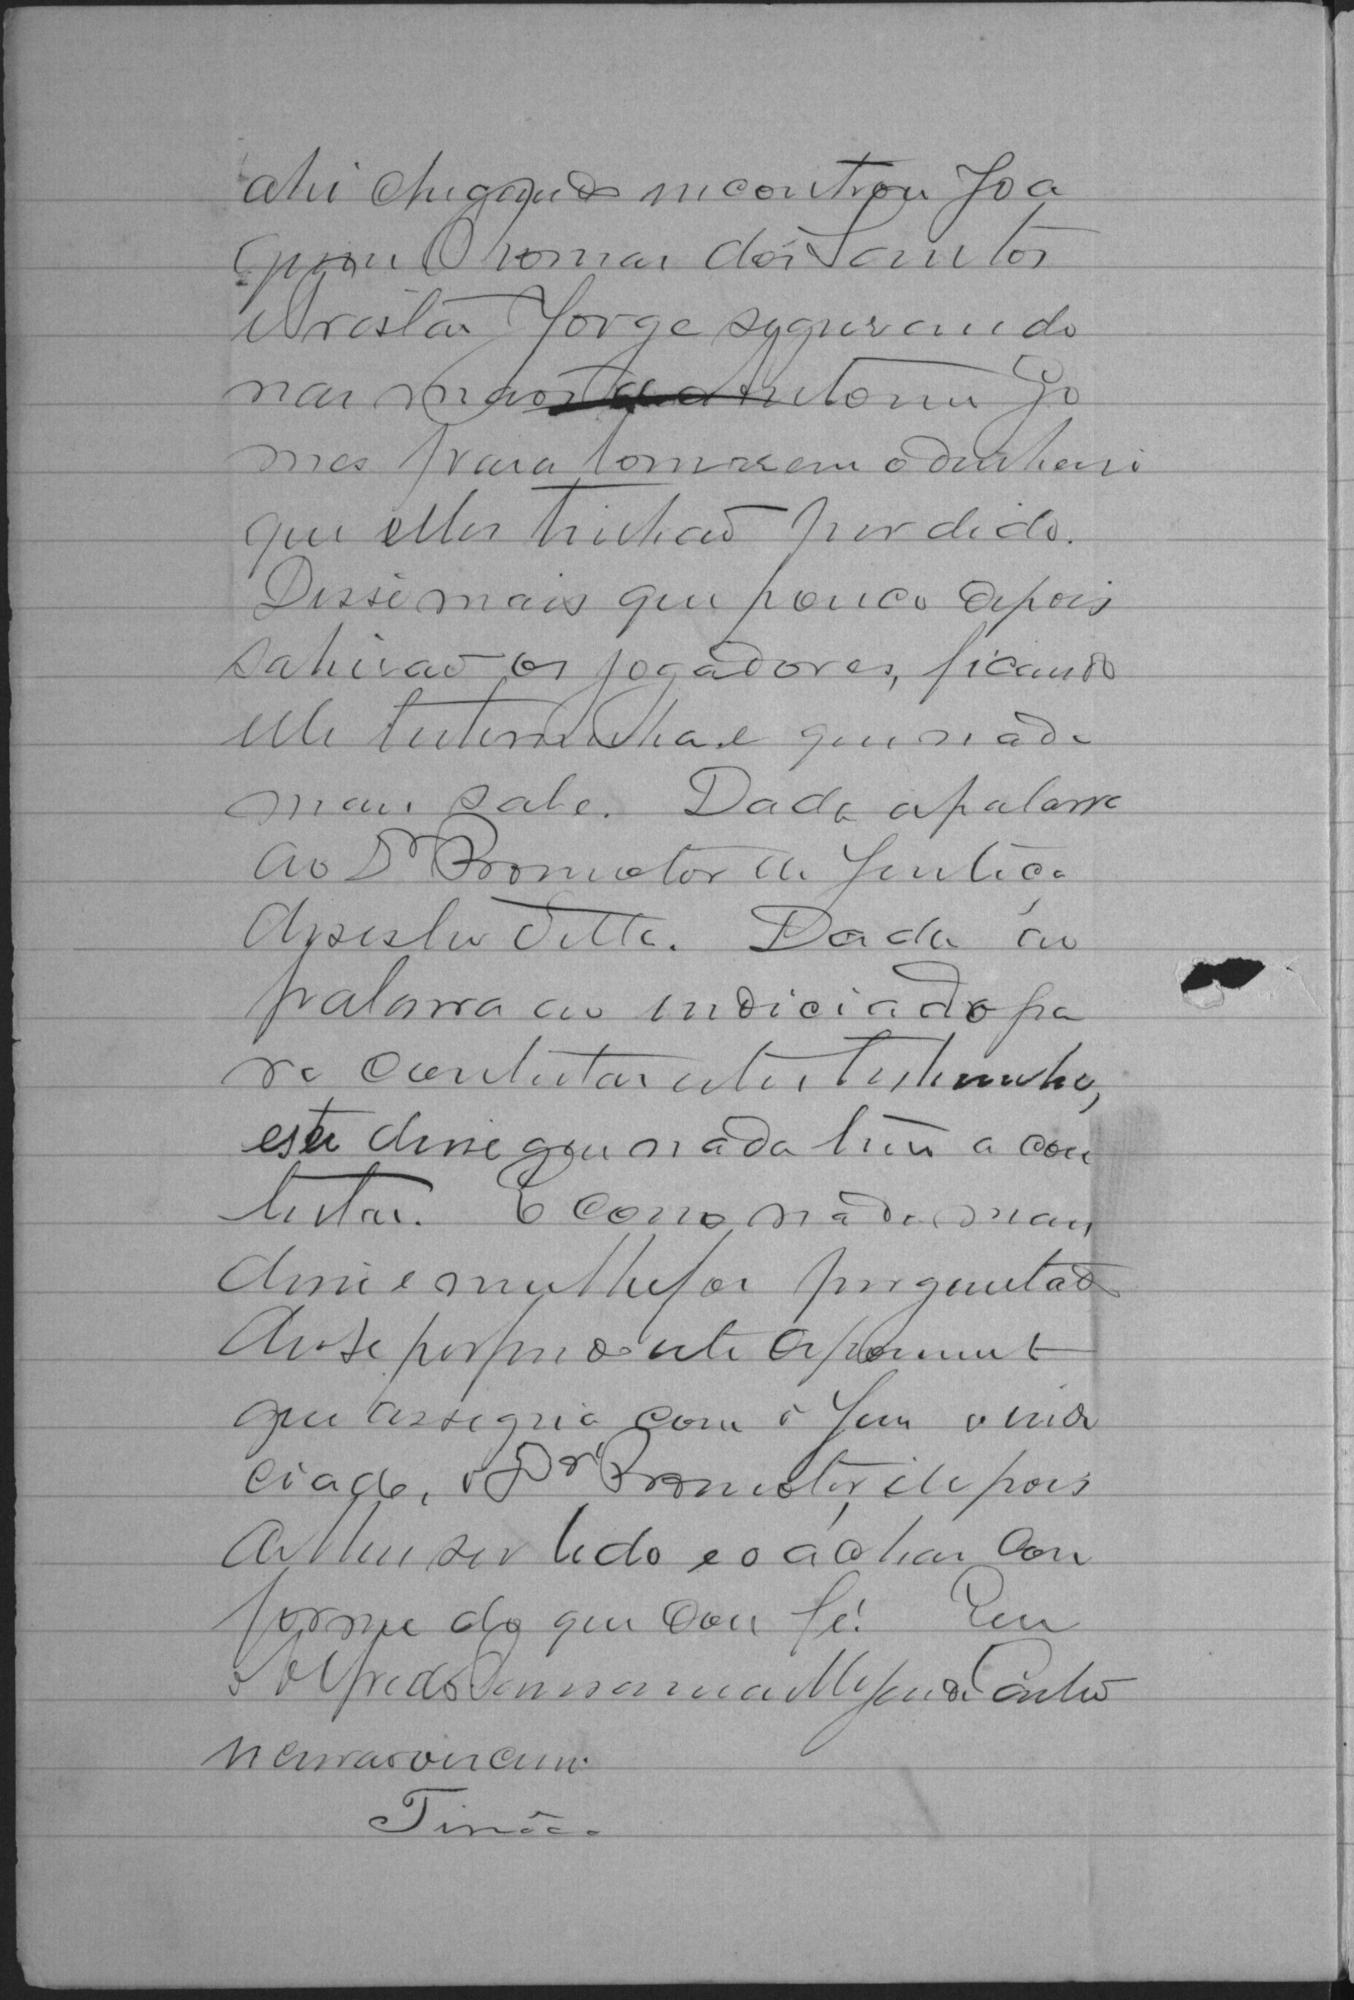 ahi chegando encontrou Joa
quim Thomas dos Santos
e Jorge segurando
nas mãos de Antonio Go
mes para tomarem o dinheiro
que elles tinhão perdido.
Disse mais que pouco depois
sahirão os jogadores, ficando
elle testemunha e que nada
mais sabe. Dada a palavra
ao Dr Promotor de Justiça
desistio della. Dada a
palavra ao indiciado pa
ra contestar esta testemunha,
este disse que nada tem a con
testar. E como nada mais
disse e nem lhe foi perguntado
deu-se por findo este depoimento
que assigna com o Juiz o indi
ciado, o Dr Promotor, depois
de lhe ser lido e o achar con
forme do que dou fé. Eu
Alfredo
escrivão o escrevi.